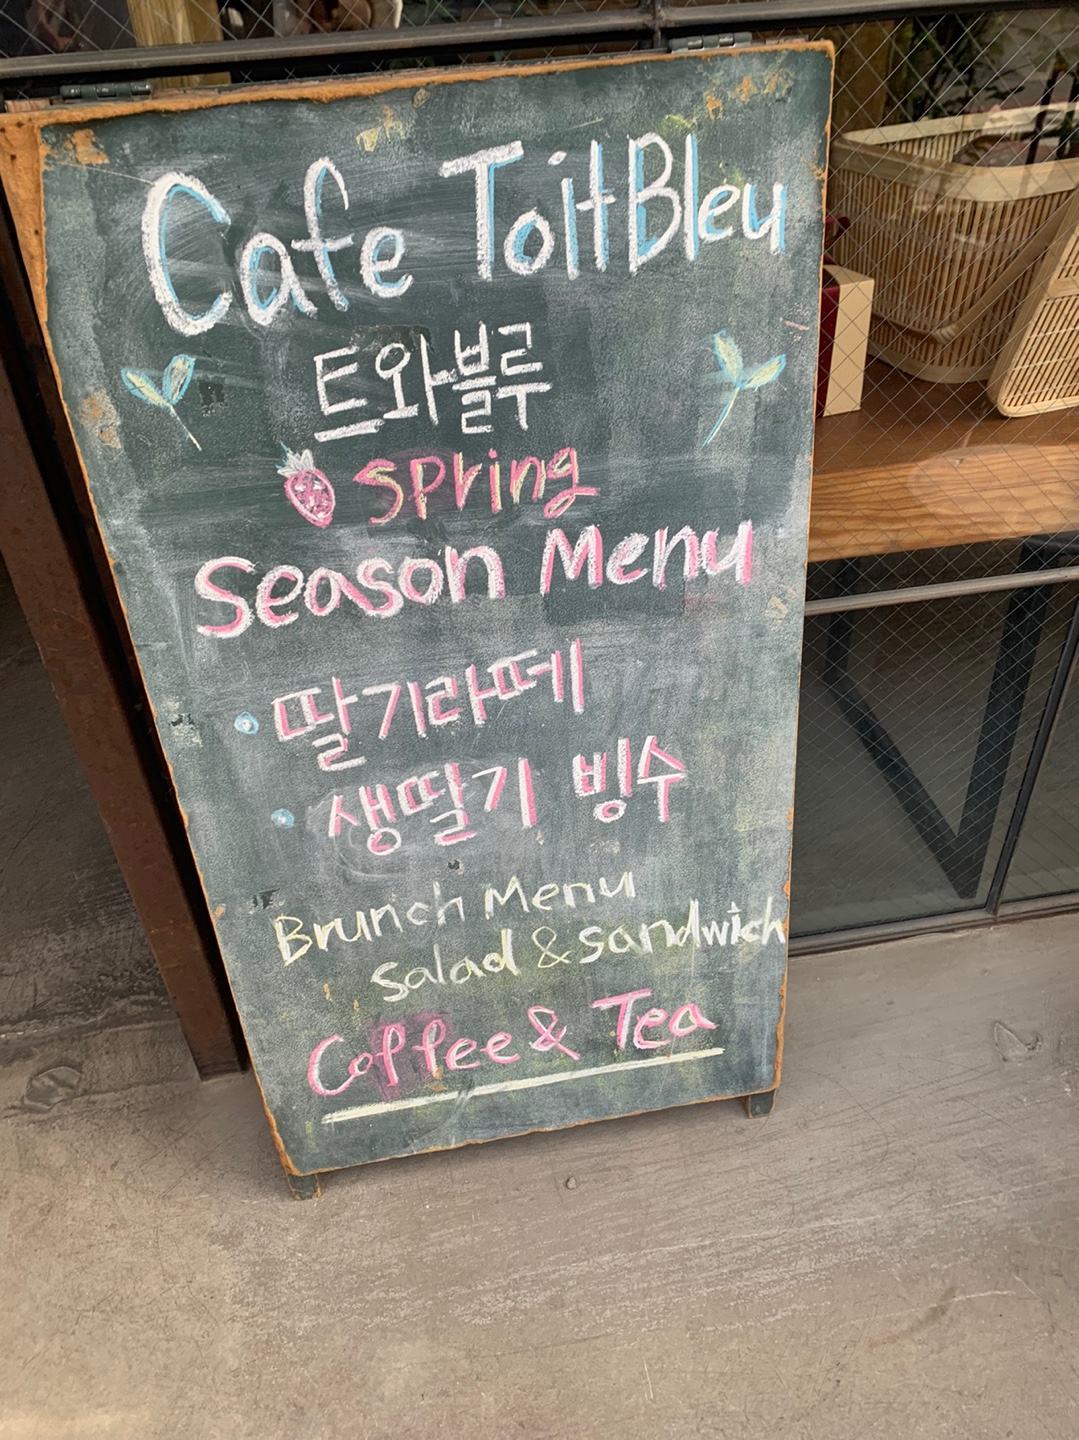 Cafe ToitBleu
트와블루
Spring
Season Menu
• 딸기라떼
• 생딸기 빙수
Brunch Menu
Salad & Sandwich
Coffee & Tea